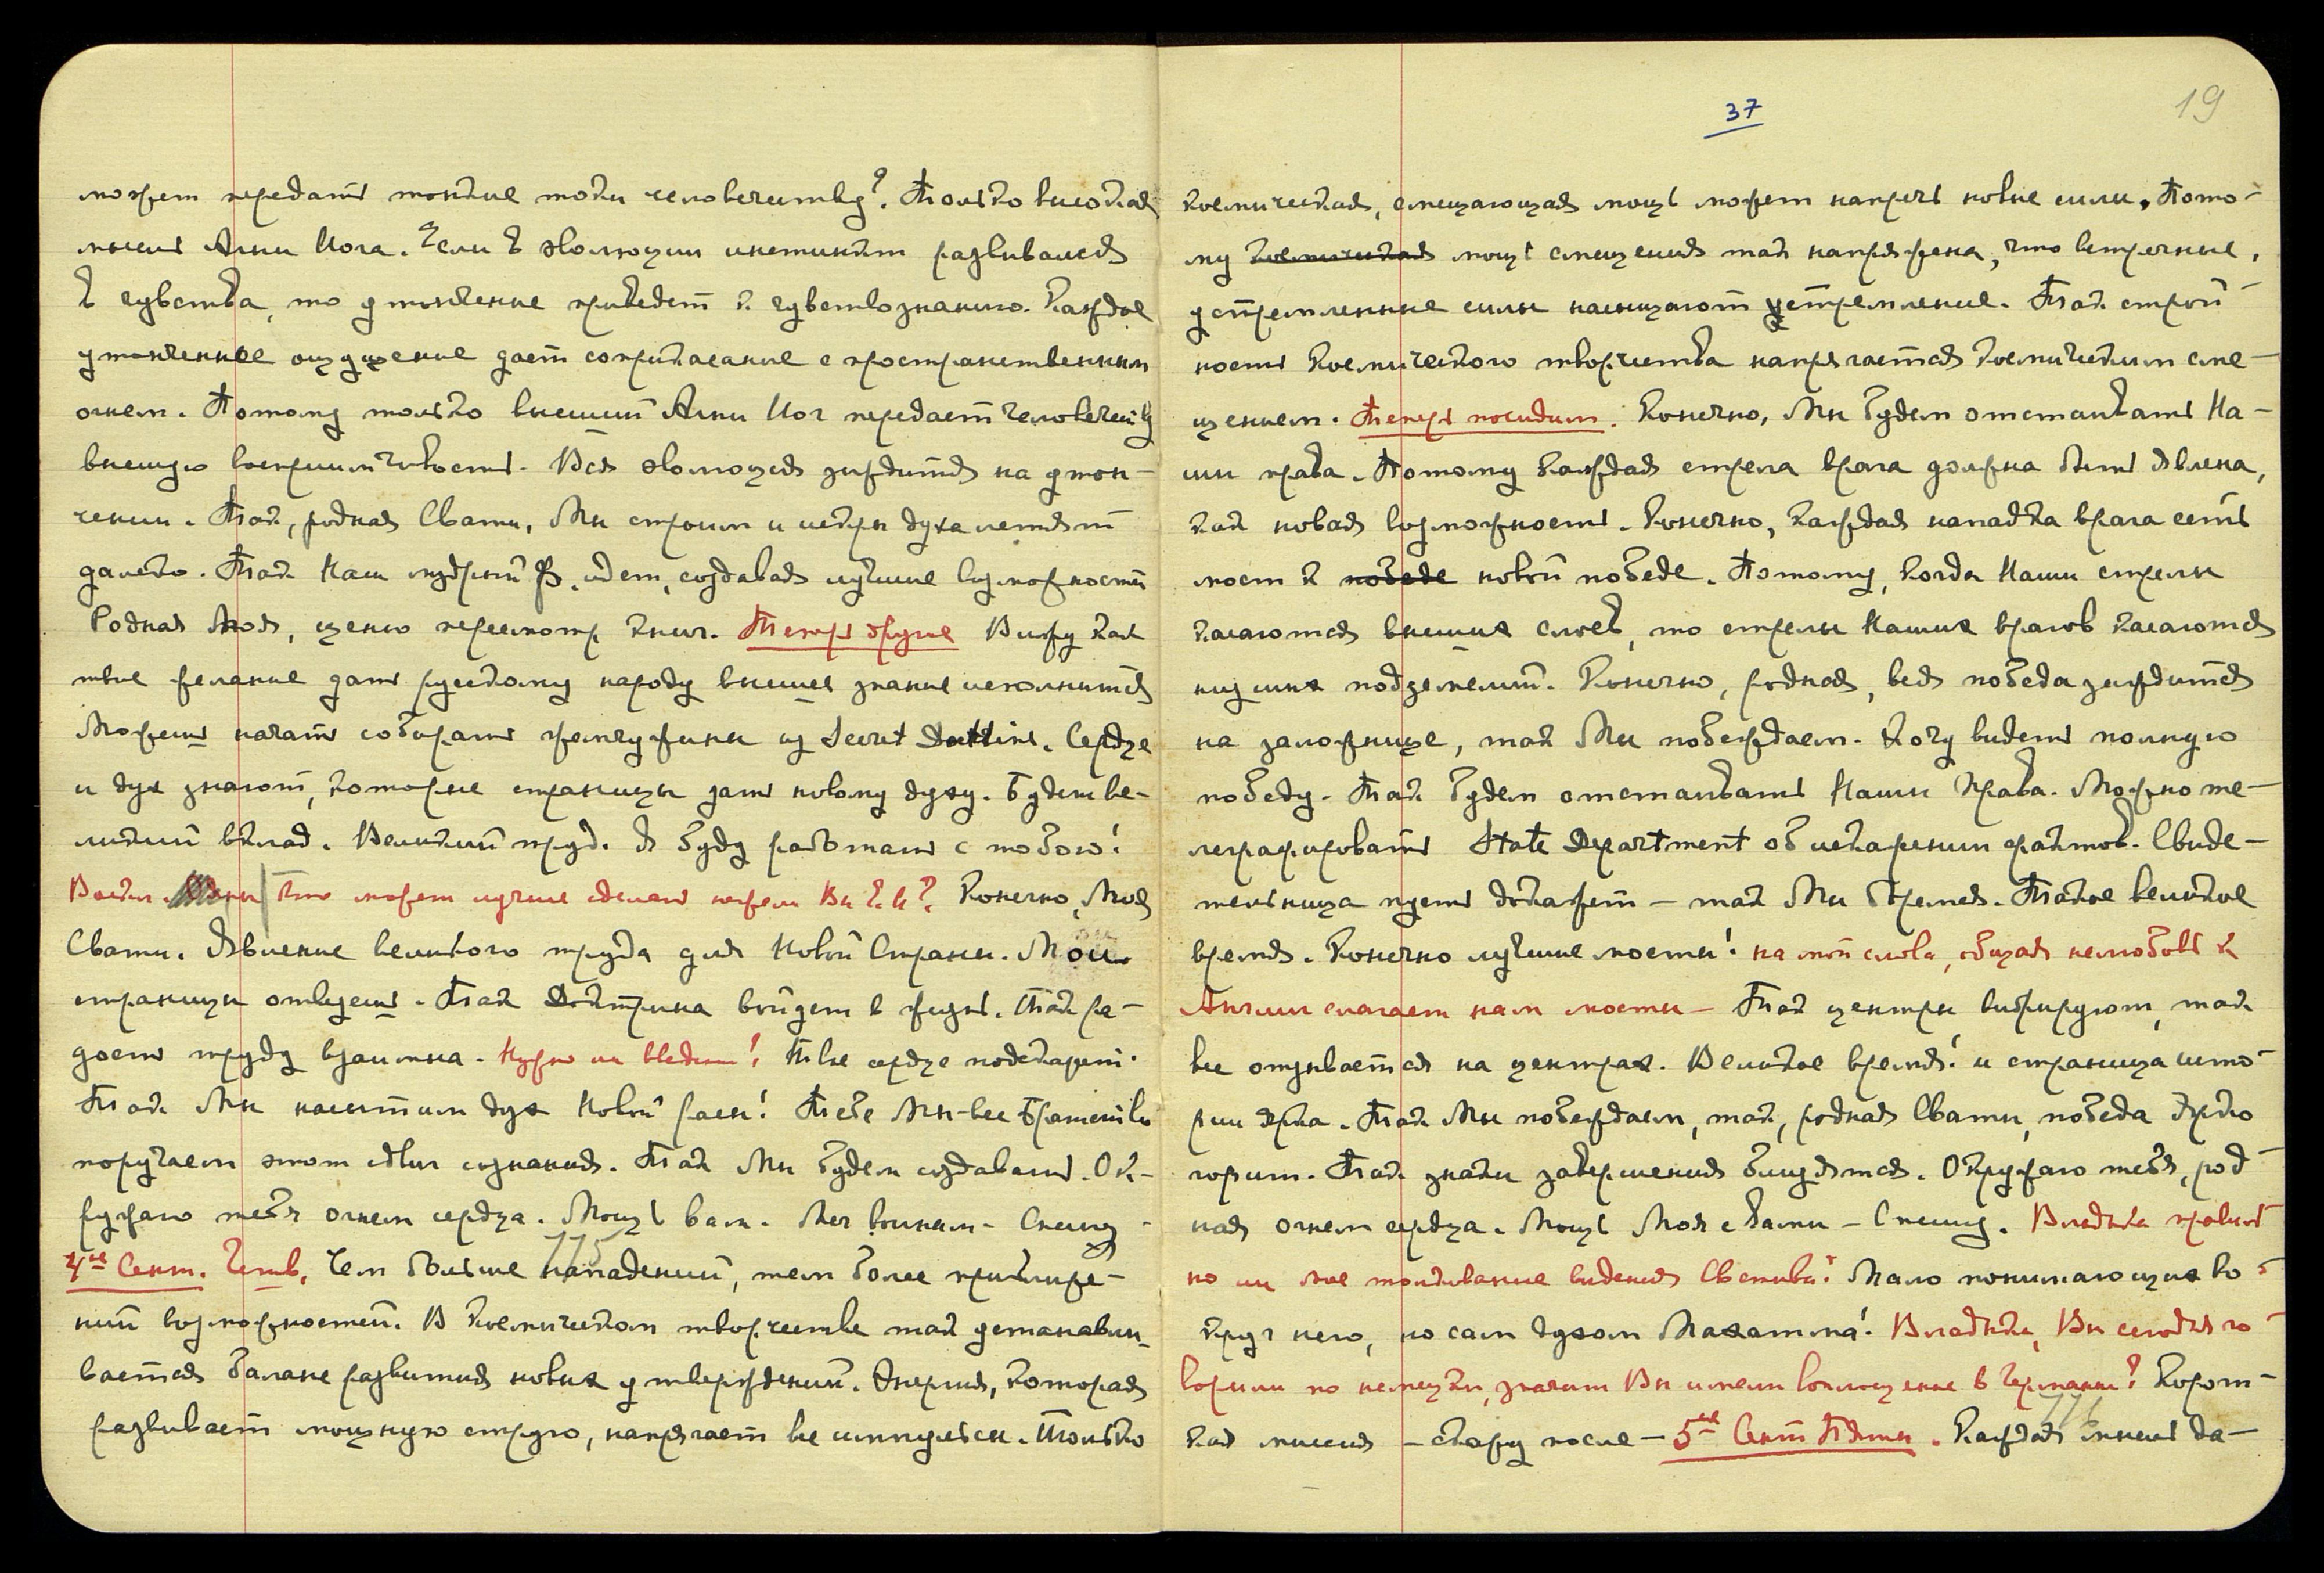 может передать тонкие токи человечеству? Только высокая
мысль Агни Йога. Если в эволюции инстинкт развивался
в чувства, то утончение приведет к чувствознанию. Каждое
утонченное ощущение дает соприкасание с пространственным
огнем. Потому только высший Агни Йог передает человечеству
высшую восприимчивость. Вся эволюция зиждится на утон-
чении. Так, родная Свати, Мы строим и искры духа летят
далеко. Так Наш мудрый Ф. идет, создавая лучшие возможности
Родная Моя, ценю пересмотр книг. Теперь другие Вижу как
твое желание дать русскому народу высшее знание исполнится
Можешь начать собирать жемчужины из Secret Doctrine. Сердце
и дух знают, которые страницы дать новому духу. Будет ве-
ликий вклад. Великий труд. Я буду работать с тобою!
Кто может лучше сделать нежели Вы Конечно, Моя
Свати. Явление великого труда для Новой Страны. Мои
страницы отведешь. Так Доктрина войдет в жизнь. Так ра-
дость труду взаимна. Нужно ли введение? Твое сердце подскажет.
Так Мы насытим дух Новой расы! Тебе Мы-все Братство
поручаем этот сдвиг сознания. Так Мы будем создавать. Ок-
ружаю тебя огнем сердца. Мощь вам. Меч воинам - Спешу
115
4ое Сент. Четв. Чем больше нападений, тем более приближе-
ний возможностей. В Космическом творчестве так устанавли-
вается баланс развития новых утверждений. Энергия, которая
развивает мощную струю, напрягает все импульсы. Только
37
19
космическая, смещающая мощь может напречь новые силы. Пото-
му космическая мощь смещения так напряжена, что встречные,
устремленные силы насыщают устремление. Так строй
ность Космического творчества напрягается космическим сме-
щением. Теперь посидим. Конечно, Мы будем отстаивать На-
ши права. Потому каждая стрела врага должна быть явлена,
как новая возможность. Конечно, каждая нападка врага есть
мост к победе новой победе. Потому, когда Наши стрелы
касаются высших слоев, то стрелы Наших врагов касаются
низших подземелий. Конечно, родная, вся победа зиждится
на заложнице, так Мы побеждаем. Хочу видеть полную
победу. Так будем отстаивать Наши Права. Можно те-
леграфировать State Department об искажении фактов. Свиде-
тельница пусть докажет - так Мы боремся. Такое великое
время. Конечно лучшие мосты! на мои слова, общая нелюбовь к
Англии слагает нам мосты - Так центры вибрируют, так
все отзывается на центрах. Великое время! и страница исто-
рии ярка. Так Мы побеждаем, так, родная Свати, победа ярко
горит. Так знаки завершения близятся. Окружаю тебя, род
ная огнем сердца. Мощь Моя с вами - Спешу. Владыка правиль
но ли мое толкование видения Светива? Мало понимающих во-
круг него, но сам духом Махатма! Владыка, Вы сегодня го-
ворили по немецки, значит Вы имели воплощение в Германии? Корот-
116
кая миссия - скажу после - 5ое Сент Пятн. Каждая мысль да-